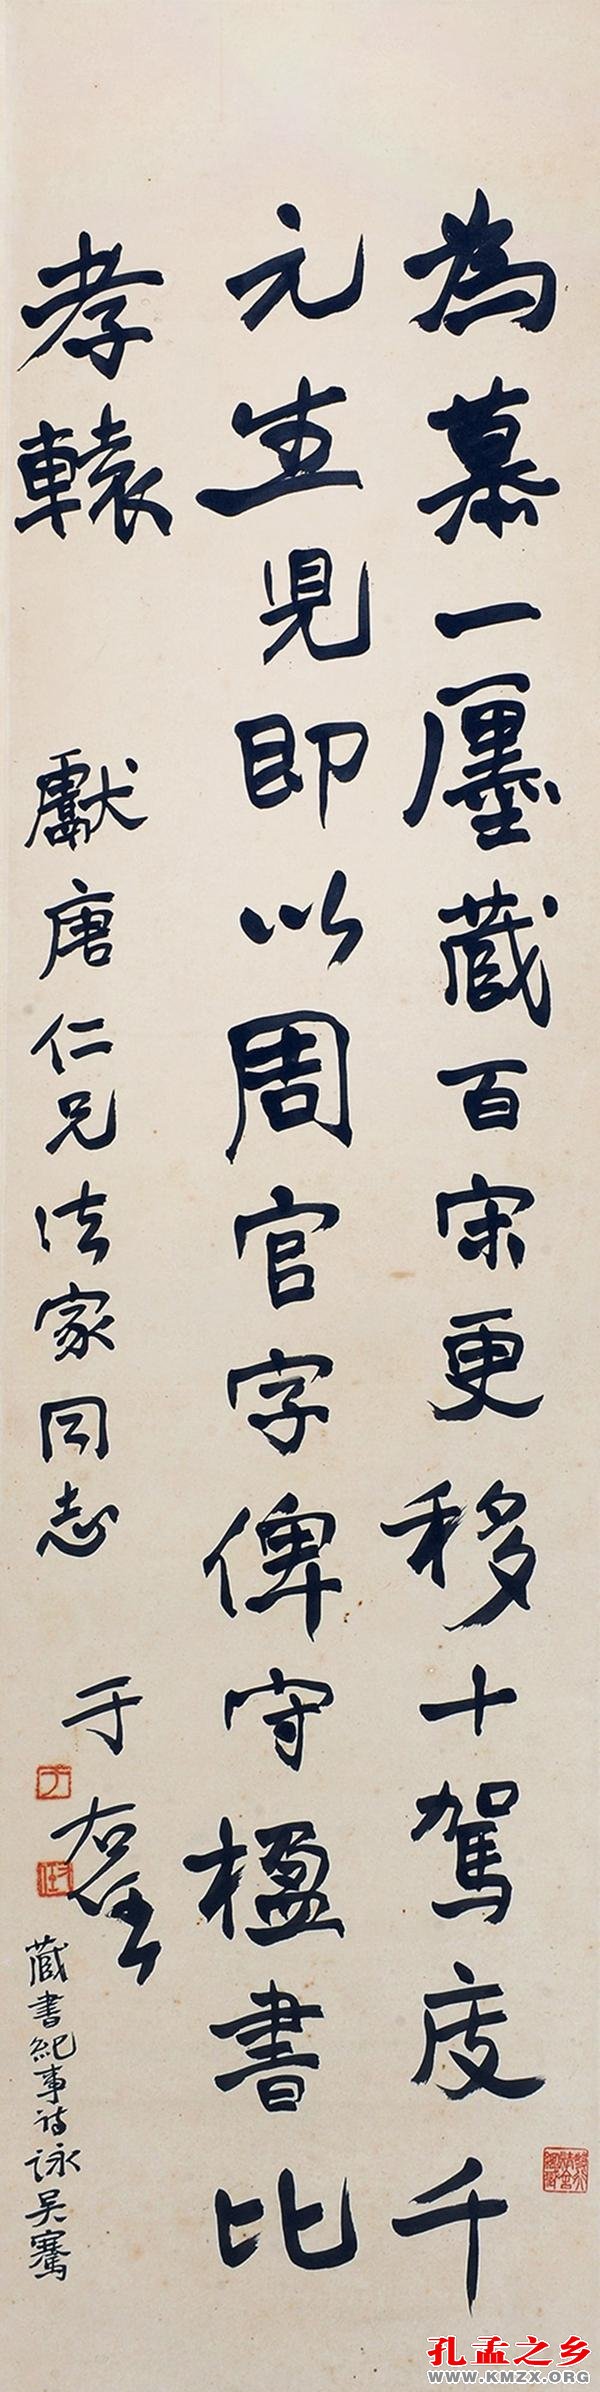 為慕一廛藏百宋更移十駕庋千
元生兒即以周官字俾守楹書比
孝轅
獻唐仁兄法家同志
于右任
藏書紀事詩詠吳騫
孔孟之乡
WWW.KMZX.ORG